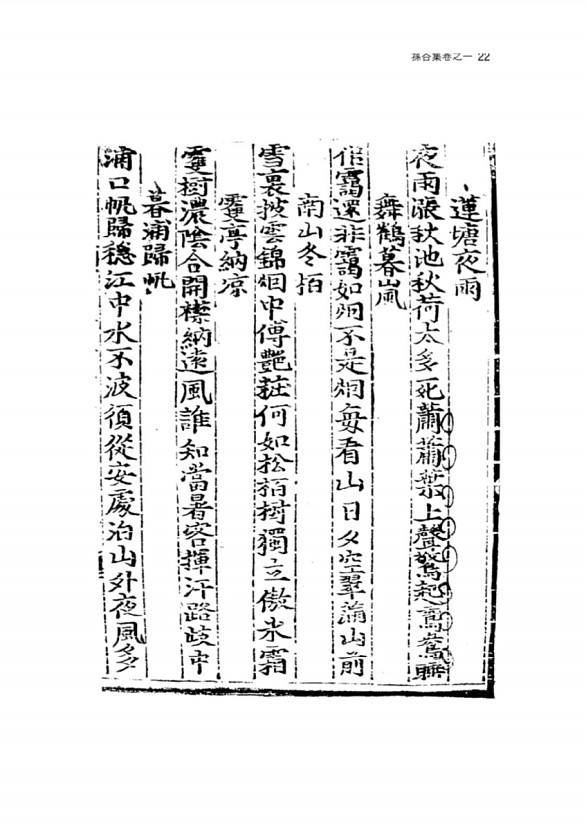 孫合集卷之一 22
蓮塘夜雨
夜雨漲秋池秋荷太多死蕭蕭葉上聲驚起鴛鴦睡
舞鶴暮嵐
作靄還非靄如烟不是烟每看山日夕空翠滿山前
南山冬栢
雪裏披雲錦烟中傅艷粧何如松栢樹獨立傲氷霜
䨇亭納凉
䨇樹濃陰合開襟納遠風誰知當暑客揮汗路歧中
暮浦歸帆
浦口帆歸穩江中水不波須從安處泊山外夜風多